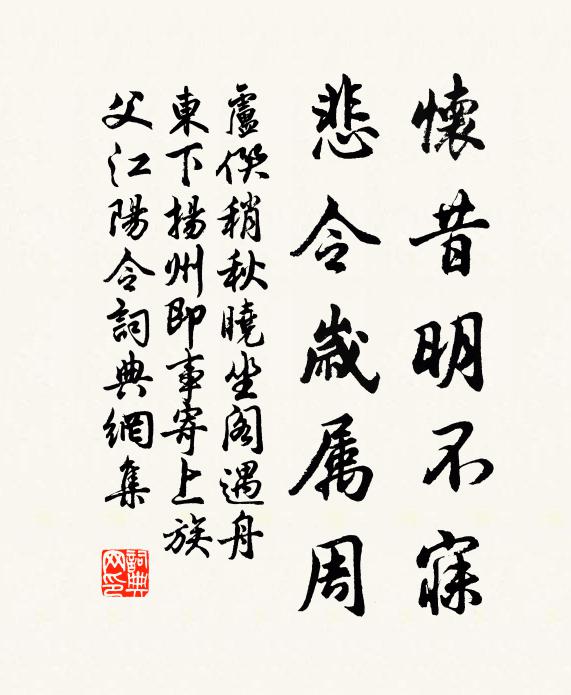 懷昔明不寐
悲令歲属周
盧僎稍秋曉坐閣遇舟
東下揚州即事寄上族
父江陽令詞典網集
詞典网印